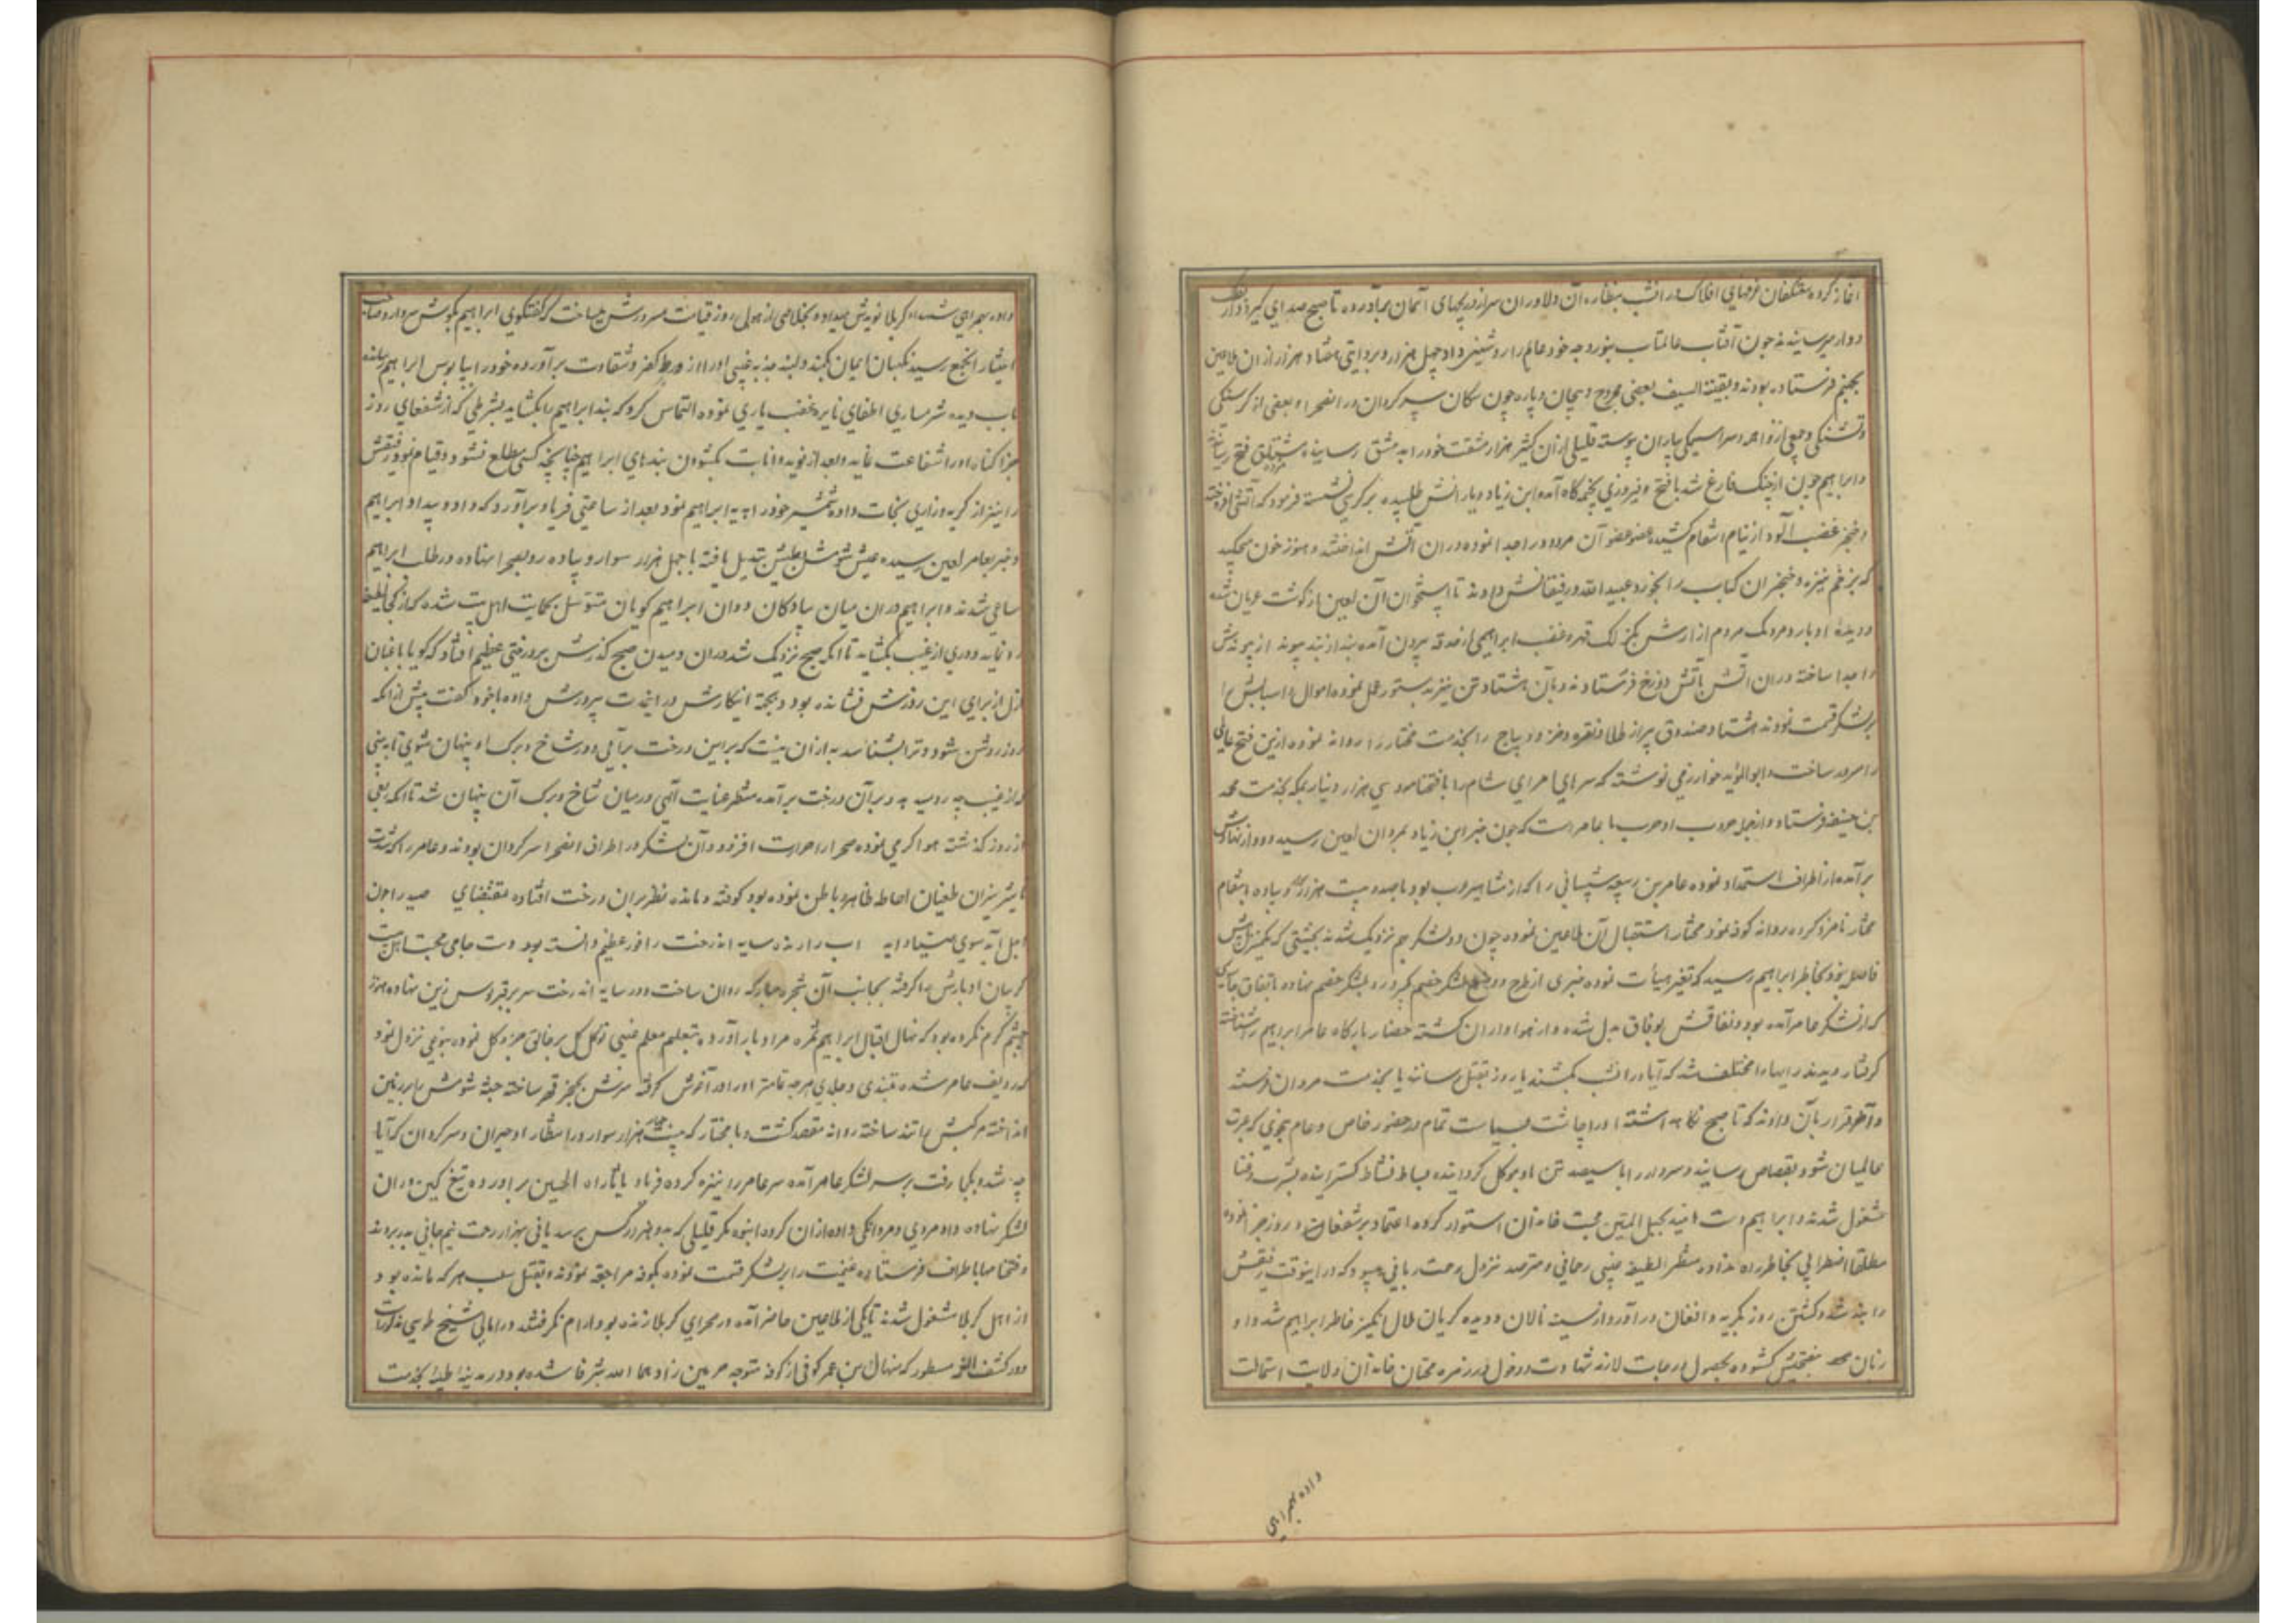 آغاز کرده معتکفان غرفهای افلاک در انشب بنظاره آن دلاوران سر از دریچهای آسمان برآورده تا صبح صدای گیر و دار
دوار میرسانیدند چون آفتاب عالمتاب بنور وجه خود عالم را روشنی داد چهل هزار و بروایتی هشتاد هزار از ان ملاعین
بجهنم فرستاده بودند و بقیة السیف بعضی مجروح و بیجان و پاره چون سکان سر کردان در انصحرا و بعضی از کرسنکی
و تشنکی و جمعی از واهمه و سراسیمکی بیاران پیوسته قلیلی از ان کثیر بهزار مشقت خود را بدمشق رسانیدند
و ابراهیم چون از جنک فارغ شد با فتح و فیروزی بخیمه گاه آمده ابن زیاد و یارانش طلبیده بر کرسی نشسته فرمود که آتش افروخته
و خنجر غضب آلود از نیام انتقام کشیده عضو عضو آن مردود را جدا نموده در ان آتش انداختند و هنوز خون میچکید
که بزخم نیزه و خنجر ان کباب را بخورد عبید الله و رفیقانش دادند تا استخوان آن لعین از گوشت عریان شده
و دیده ادبار و مردمک مردم ازارش بکزلک قهر و غضب ابراهیمی از حدقه بیرون آمده بند از بند پیوند از پیوندش
را جدا ساخته در ان اتش بآتش دوزخ فرستادند و بآن هشتاد تن نیز بدستور عمل نموده اموال و اسبابش را
بر لشکر قسمت نمودند هشتاد صندوق پر از طلا و نقره و خز و دیباج را بخدمت مختار روانه نموده ازین فتح عالی
را مسرور ساخت و ابو المؤید خوارزمی نوشته که سرهای امرای شام را با فتحنامه و سی هزار دینار بمکه بخدمت محمد
بن حنفیه فرستاد و از جمله حروب او حرب با عامر است که چون خبر ابن زیاد بمروان لعین رسید دود از نهادش
برآمده از اطراف استمداد نموده عامر بن ربیعه شیبانی را که از مشاهیر عرب بود با صد و بیست هزار سوار و پیاده بانتقام
مختار نامزد کرده روانه کوفه نمود مختار استقبال آن ملاعین نموده چون دو لشکر بهم نزدیک شدند بحیثیتی که یکمنزل بیش
فاصله نبود بخاطر ابراهیم رسید که تغیر هیأت نموده خبری از طرح و وضع لشکر خصم گیرد رو بلشکر خصم نهاده باتفاق
که از لشکر عامر آمده بود و نفاقش بوفاق بدل شده و از هواداران کشته حضار بارگاه عامر ابراهیم را شناخته
گرفتار دیدند رایها را مختلف شد که آیا در انشب بکشند یا روز بقتل رسانند یا بخدمت مروان فرستند
و آخر قرار بآن دادند که تا صبح نکاه داشته او را چاشت بسیاست تمام در حضور خاص و عام بنحوی که عبرت
عالمیان شود بقصاص رسانند و سردار را با سیصد تن باو موکل کردانیده بساط نشاط کسترانیده بشرب و غنا
مشغول شدند و ابراهیم دست امید بحبل المتین محبت خاندان استوار کرده اعتماد بر شفعای روز جزا نموده
مطلقا اضطرابی بخاطر راه نداده منتظر لطیفه غیبی رحمانی و مترصد نزول رحمت ربانی میبود که در اینوقت رفیقش
را بند شد و کشتن روز بکریه و افغان درآورد از سینه نالان و دیده کریان ملال انگیز خاطر ابراهیم شد و او
زبان بنصیحتش کشوده بحصول درجات شهادت و دخول در زمره محبان خاندان ولایت استمالت
داده بهمراهی
داده بهمراهی شهداء کربلا نویدش میداد و بخلاصی از هولی روز قیامت مسرورش میساخت که گفتگوی ابراهیم بگوش سردار و صاحب
اختیار آنجمع رسید نگهبان ایمان بکمند دلبند جذبه غیبی او را از ورطه کفر و شقاوت برآورده خود را بپابوس ابراهیم رسانده
بآب دیده شرمساری اطفای نایره غضب باری نموده التماس کرد که بند ابراهیم را بکشاید بشرطی که از شفعای روز
جزا گناه او را شفاعت نماید و بعد از توبه و انابت بکشودن بندهای ابراهیم چنانچه کسی مطلع نشود قیام نمود و رفیقش
را نیز از کریه و زاری نجات داده شمشیر خود را هدیه ابراهیم نمود بعد از ساعتی فریاد برآورد که داد و بیداد ابراهیم
و خبر بعامر لعین رسیده عیش شومش بطیش تبدیل یافته با چهل هزار سوار و پیاده رو بصحرا نهاده در طلب ابراهیم
ساعی شدند و ابراهیم در ان میان پیادکان دوان ابراهیم کویان متوسل بحمایت اهل بیت شده که از کجا لطیفه
رو نماید و دری از غیب بکشاید تا آنکه صبح نزدیک شد در ان دمیدن صبح گذرش بر درختی عظیم افتاد که گویا باغبان
ازل از برای این روزش نشانده بود و بجهة اینکارش در اینمدت پرورش داده با خود گفت پیش از آنکه
روز روشن شود و ترا بشناسد به از ان نیست که بر این درخت برآئی و در شاخ و برک او پنهان شوی تا به بینی
که از غیب چه روی دهد بر آن درخت برآمده منتظر عنایت آلهی در میان شاخ و برک آن پنهان شد تا آنکه بعضی
از روز گذشته هوا گرمی نموده صحرا را حرارت افزود و آن لشکر در اطراف انصحرا سرکردان بودند و عامر را که شدت
تاثیر نیران طغیان احاطه ظاهر و باطن نموده بود کوفته و مانده نظر بران درخت افتاده بمقتضای صید را چون
اجل آید سوی صیاد آید اسب را رانده سایه اندرخت را فوز عظیم دانسته بود دست حامی محبت اهل بیت
گریبان ادبارش را گرفته بجانب آن شجره مبارکه روان ساخت و در سایه اندرخت سر بر قربوس زین نهاده هنوز
چشم گرم نکرده بود که نهال اقبال ابراهیم ثمره مراد بار آورده بتعلیم معلم غیبی توکل کل بر خالق جزو کل نموده بنوعی نزول نمود
که ردیف عامر شده بتندی و جلدی هر چه تمامتر او را در آغوش گرفته سرش بخنجر قهر ساخته جثه شومش را بر زمین
انداخته مرکبش را تند ساخته روانه مقصد کشت و با مختار که بیست هزار سوار در انتظار او حیران و سرکردان که آیا
چه شد و بکجا رفت بر سر لشکر عامر آمده سر عامر را بر نیزه کرده فریاد یا ثارات الحسین برآورده تیغ کین در ان
لشکر نهاده داد مردی و مردانکی داده از ان گروه انبوه مکر قلیلی که به دو هزار کس میرسد یا نی بهزار زحمت نیم جانی بدر بردند
و فتحنامها باطراف فرستاده غنیمت را بر لشکر قسمت نموده بکوفه مراجعه نمودند و بقتل و سلب هر که مانده بود
از اهل کربلا مشغول شدند تا یکی از ملاعین حاضر آمده در صحرای کربلا زنده بود ارام نکرفتند در امالی شیخ طوسی مذکور است
و در کشف الغمه مسطور که منهال بن عمر کوفی از کوفه متوجه حرمین زادهما الله شرفا شده بود و در مدینه طیبه بخدمت